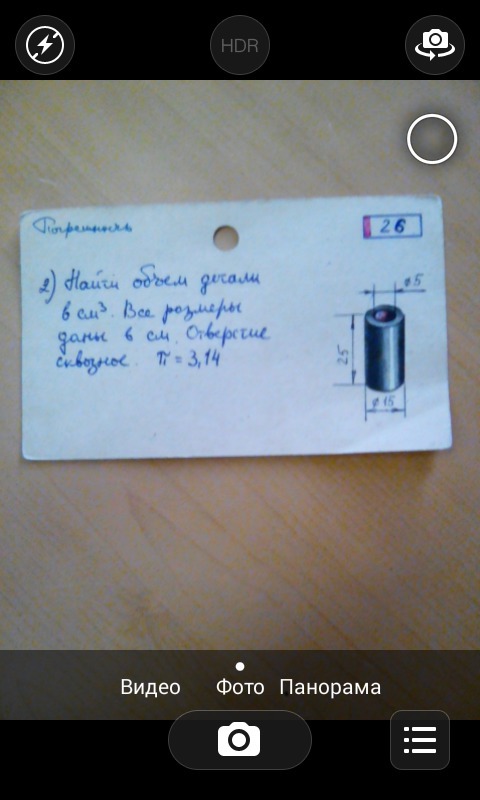 HDR
Погрешность
26
2) Найти объем детали
в см³. Все размеры
даны в см. Отверстие
сквозное. π = 3,14
ø5
25
ø15
Видео Фото Панорама